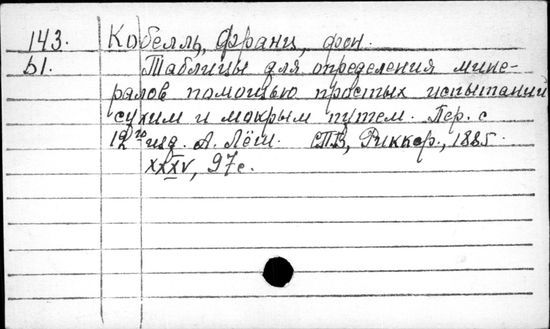 143. Кобелль, Франц, фон.
Ы. Таблицы для определения мине-
ралов помощью простых испытаний
сухим и мокрым путем. Пер. с
12го изд. А. Лёш. СПБ, Риккер, 1885.
XXXV, 97 с.